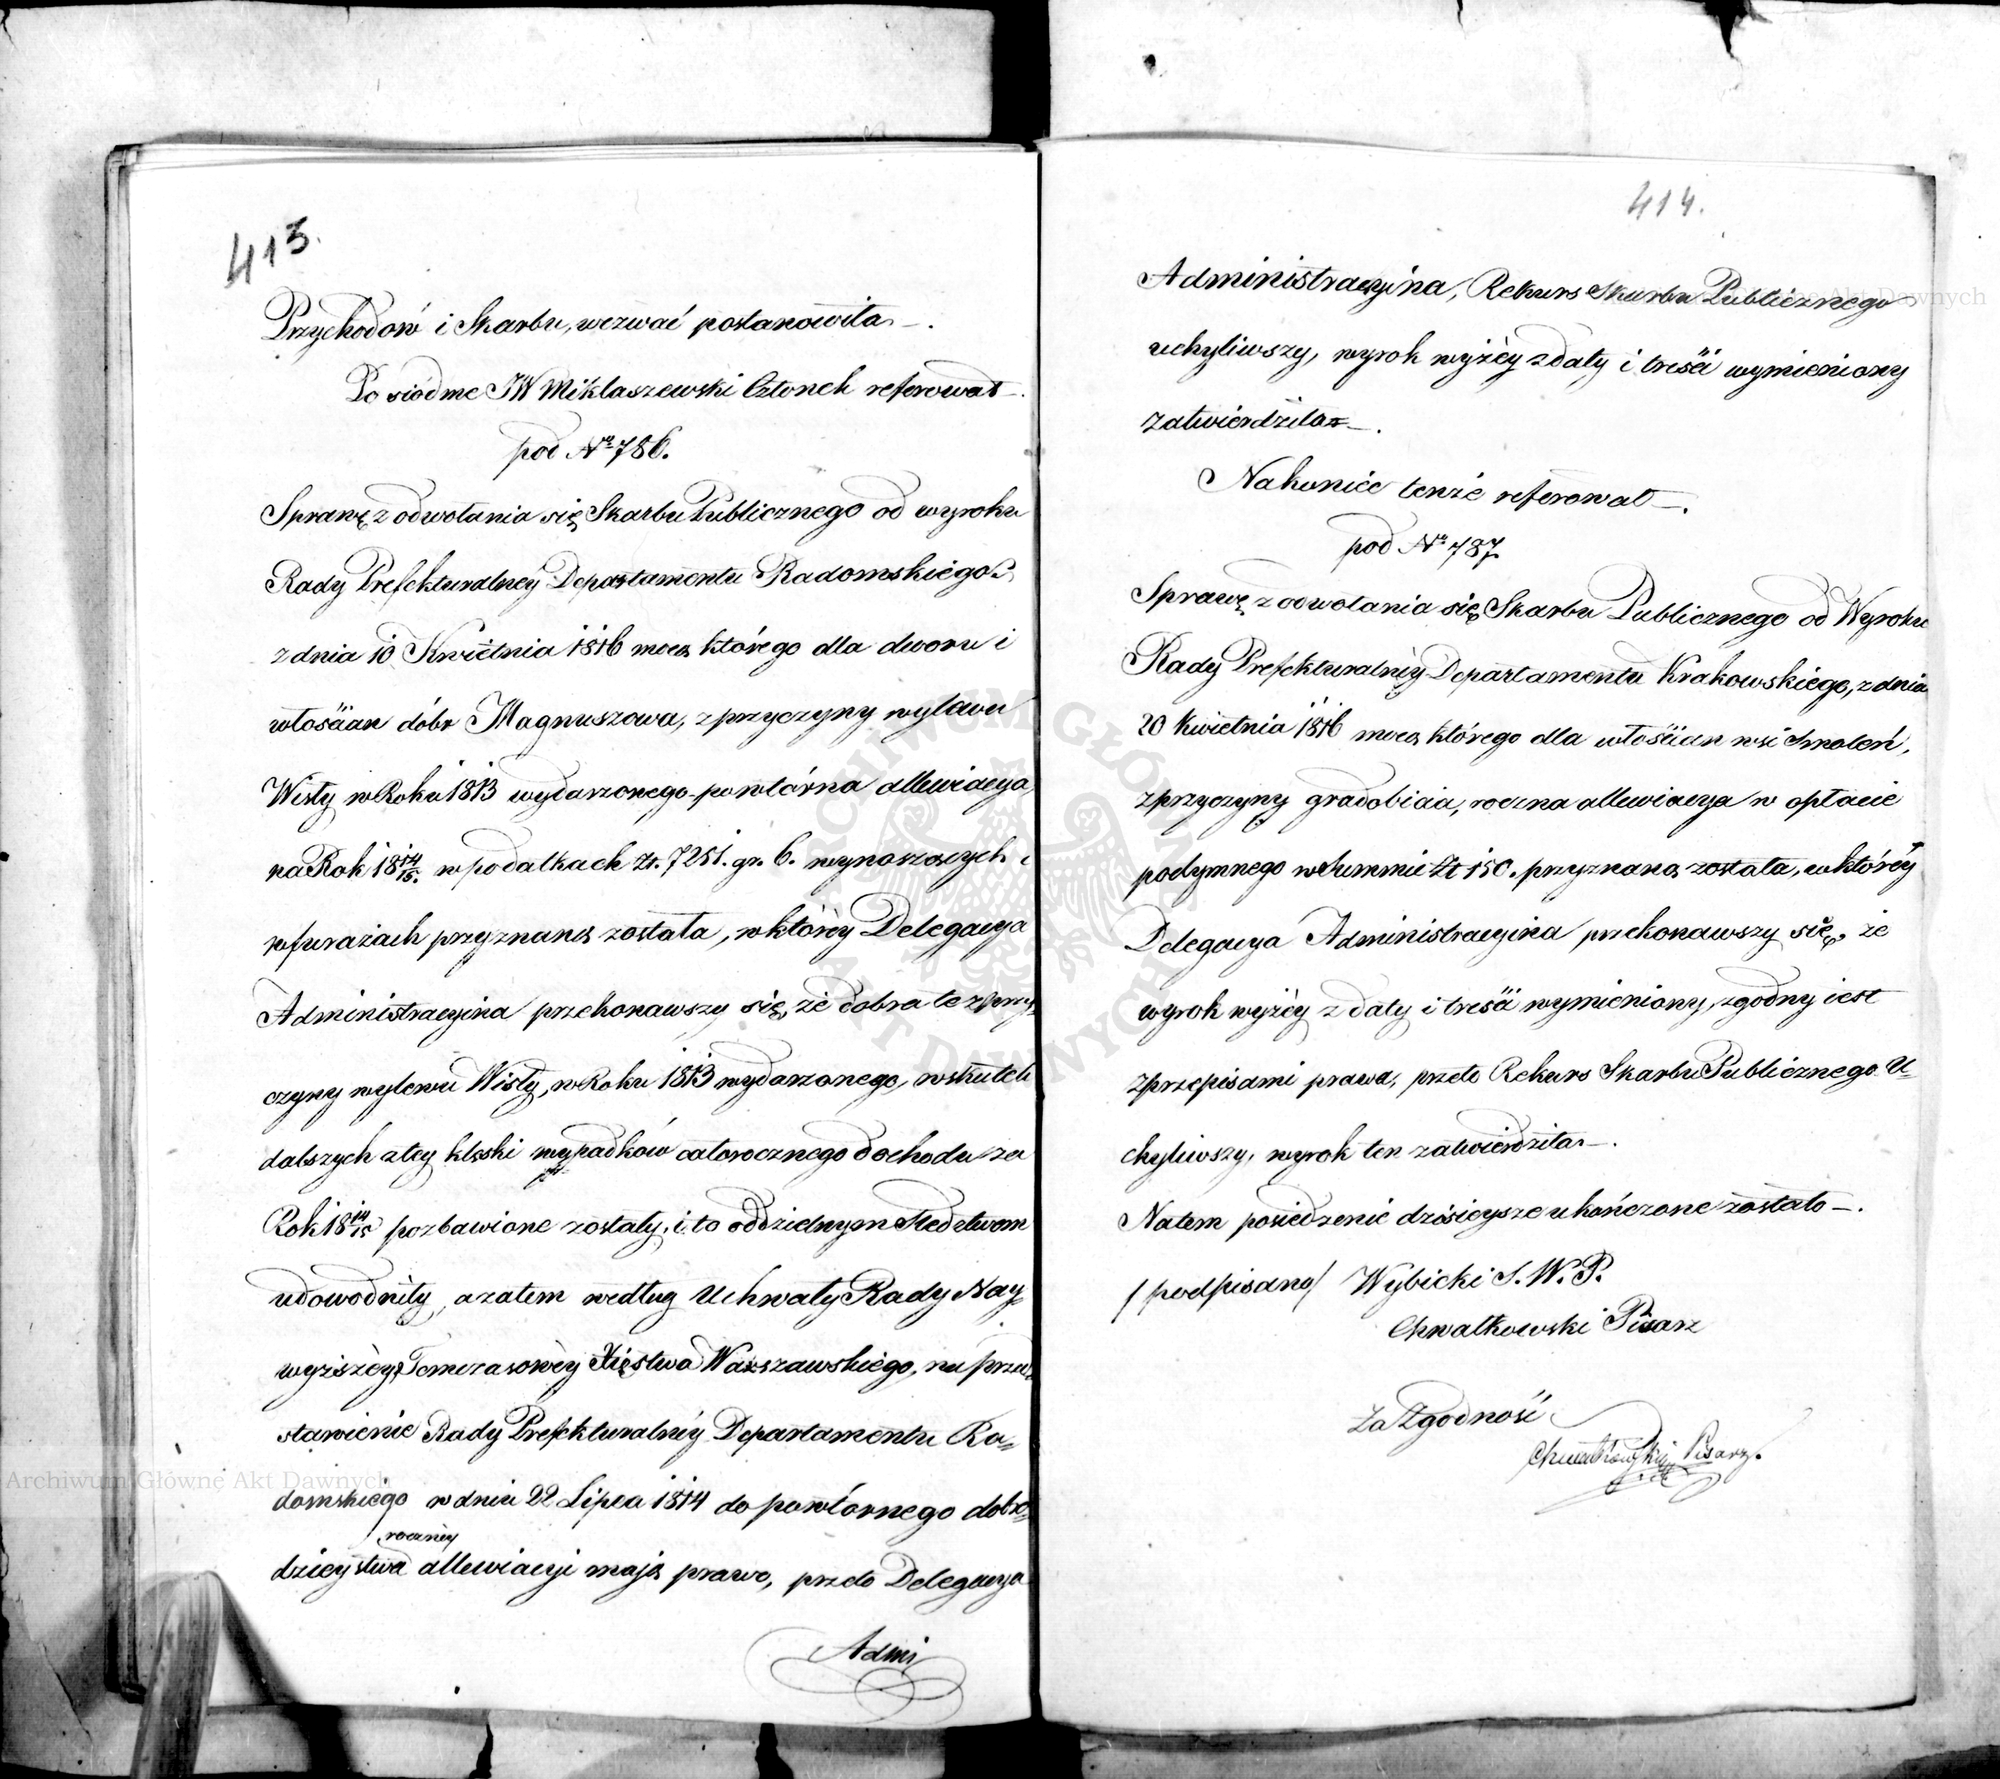 413.
Przychodow i Skarbu, wezwać postanowiła —.
Po siódme JW Miklaszewski Członek referował —.
pod Nº 786.
Sprawę z odwołania się Skarbu Publicznego od wyroku
Rady Prefekturalney Departamentu Radomskiego
z dnia 10 Kwietnia 1816 mocą którego dla dworu i
włościan dóbr Magnuszowa, z przyczyny wylewu
Wisły w Roku 1813 wydarzonego powtórna allewiacya
na Rok 18 14/15. w podatkach Zł. 7251. gr. 6. wynoszących i
w furażach przyznaną została, w którey Delegacya
Administracyina przekonawszy się, że dobra te z przy-
czyny wylewu Wisły, w Roku 1813 wydarzonego, w skutek
dalszych z tey klęski wypadków całorocznego dochodu za
Rok 18 14/15 pozbawione zostały, i to oddzielnym śledztwem
udowodniły, a zatem według Uchwały Rady Nay-
wyższey Tymczasowey Xięstwa Warszawskiego, na przed-
stawienie Rady Prefekturalney Departamentu Ra-
domskiego w dniu 22 Lipca 1814 do powtórnego dobro-
roczney
dzieystwa allewiacyi maią prawo, przeto Delegacya
Admi
414.
Administracyina, Rekurs Skarbu Publicznego
uchyliwszy, wyrok wyżey z daty i treści wymieniony
zatwierdziła —.
Nakoniec tenże referował —.
pod Nº 787.
Sprawę z odwołania się Skarbu Publicznego od Wyroku
Rady Prefekturalney Departamentu Krakowskiego, z dnia
20 Kwietnia 1816 mocą którego dla włościan wsi Smoleń,
z przyczyny gradobicia, roczna allewiacya w opłacie
podymnego w Summie Zł 150. przyznaną została, w którey
Delegacya Administracyina przekonawszy się, że
wyrok wyżey z daty i treści wymieniony, zgodny iest
z przepisami prawa, przeto Rekurs Skarbu Publicznego U-
chyliwszy, wyrok ten zatwierdziła —.
Na tem posiedzenie dzisieysze ukończone zostało —.
/ podpisano / Wybicki S. W. P.
Chwalkowski Pisarz
Za Zgodność
Chwalkowski Pisarz.
Archiwum Główne Akt Dawnych
ARCHIWUM GŁÓWNE AKT DAWNYCH